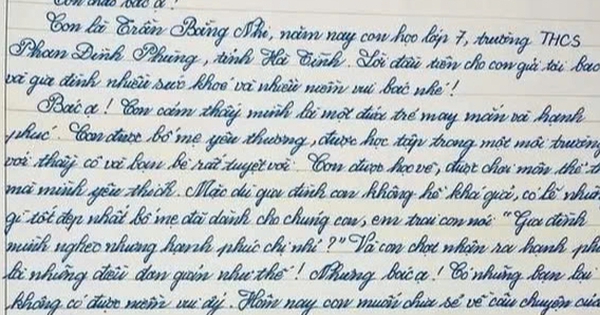 Con chào bác ạ!
Con là Trần Băng Nhi, năm nay con học lớp 7, trường THCS
Phan Đình Phùng, tỉnh Hà Tĩnh. Lời đầu tiên cho con gửi tới bác
và gia đình nhiều sức khoẻ và nhiều niềm vui bác nhé!
Bác ạ! Con cảm thấy mình là một đứa trẻ may mắn và hạnh
phúc. Con được bố mẹ yêu thương, được học tập trong một môi trường
với thầy cô và bạn bè rất tuyệt vời. Con được học vẽ, được chơi môn thể th
mà mình yêu thích. Mặc dù gia đình con không hề khá giả, có lẽ nhữn
gì tốt đẹp nhất bố mẹ đã dành cho chúng con, em trai con nói "Gia đình
mình nghèo nhưng hạnh phúc chị nhỉ?" Và con chợt nhận ra hạnh ph
là những điều đơn giản như thế! Nhưng bác ạ! Có những bạn lại
không có được niềm vui ấy. Hôm nay con muốn chia sẻ về câu chuyện của